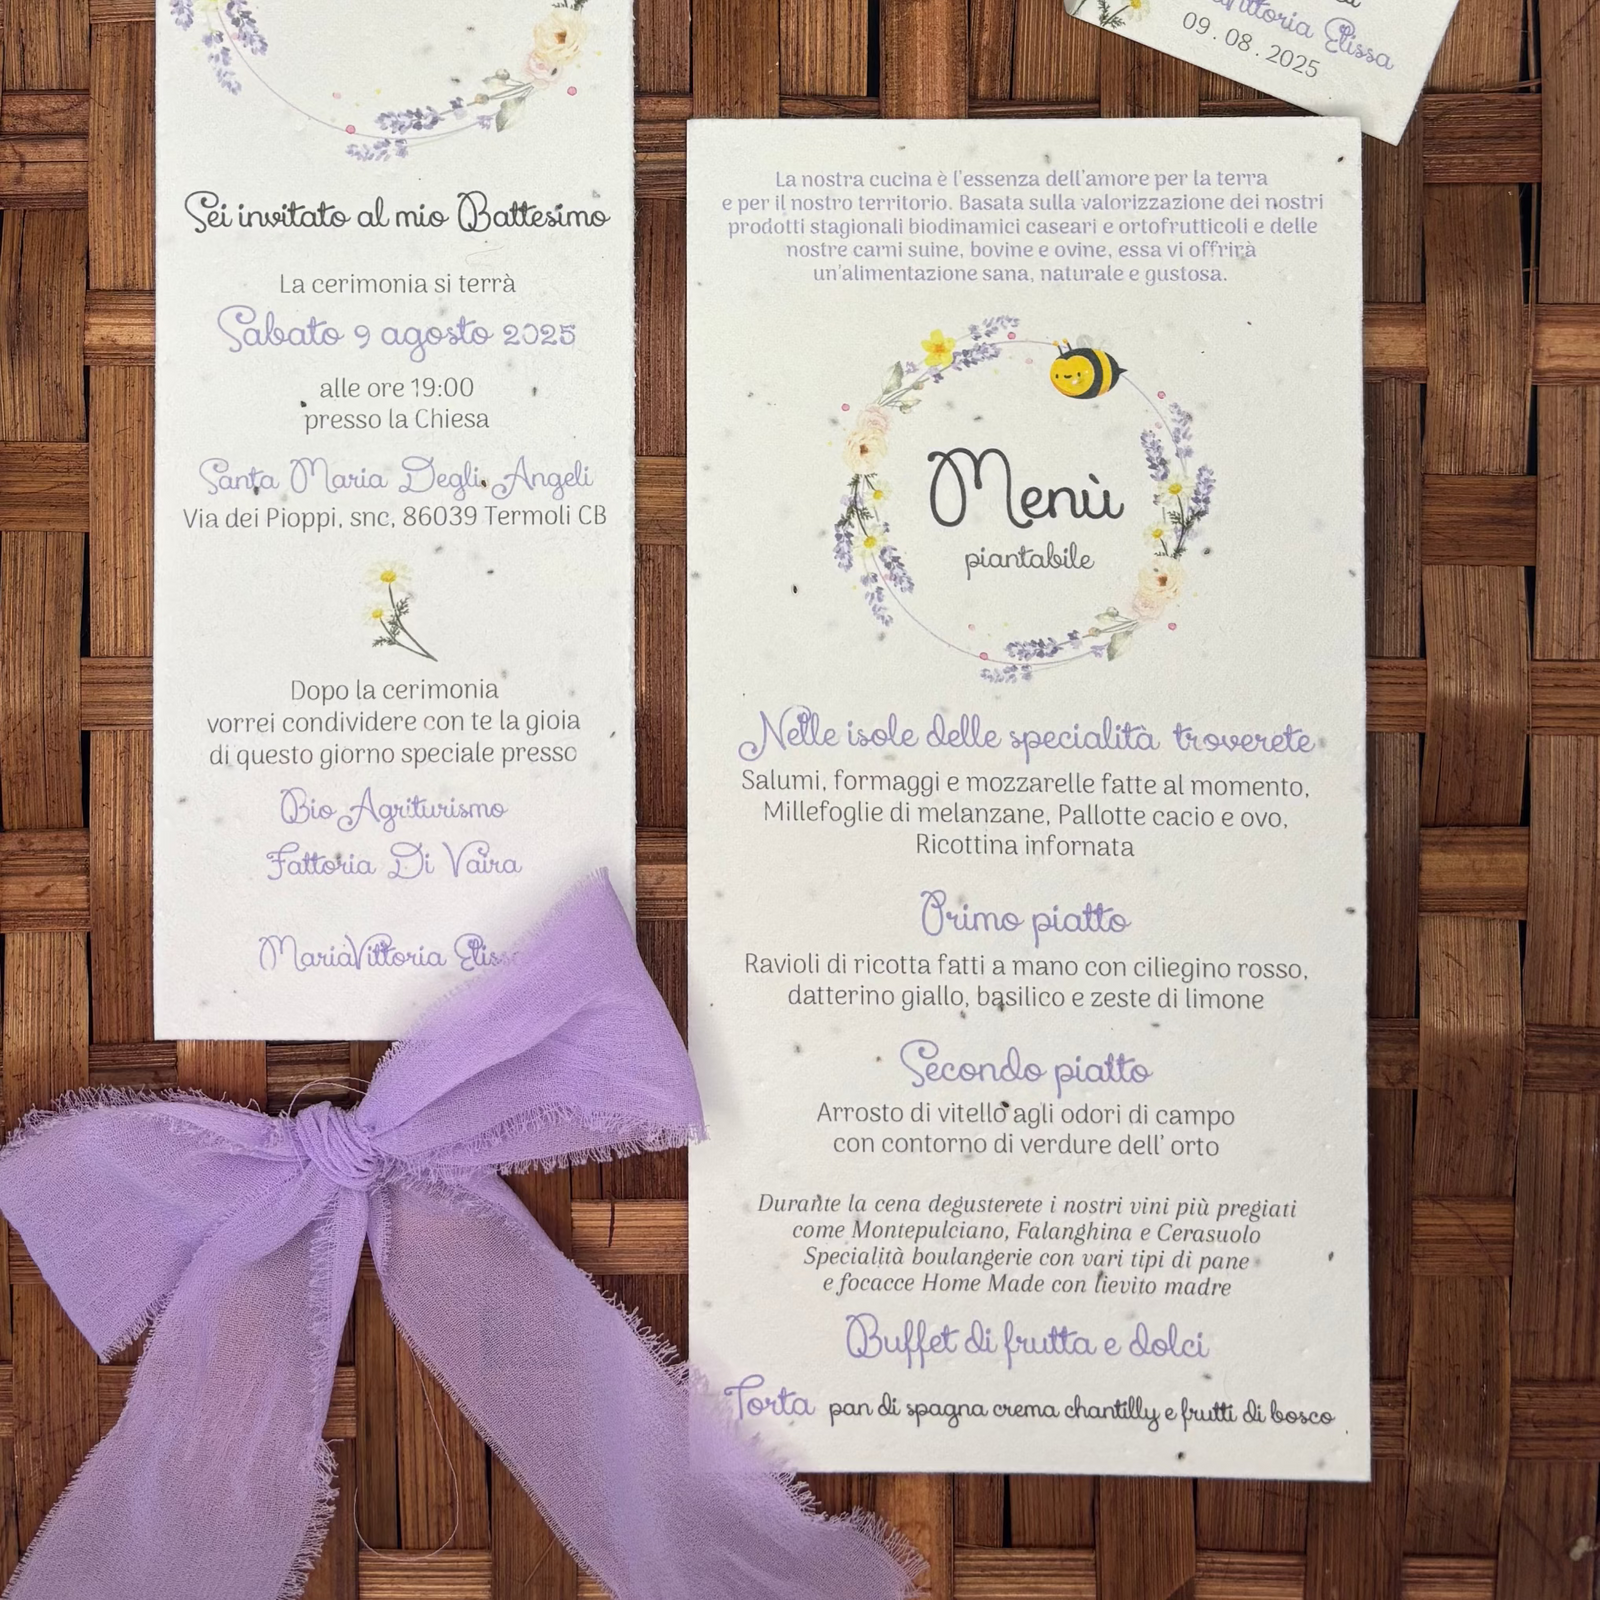 Sei invitato al mio Battesimo
La cerimonia si terrà
Sabato 9 agosto 2025
alle ore 19:00
presso la Chiesa
Santa Maria Degli Angeli
Via dei Pioppi, snc, 86039 Termoli CB
Dopo la cerimonia
vorrei condividere con te la gioia
di questo giorno speciale presso
Bio Agriturismo
Fattoria Di Vaira
MariaVittoria Elissa
La nostra cucina è l'essenza dell'amore per la terra
e per il nostro territorio. Basata sulla valorizzazione dei nostri
prodotti stagionali biodinamici caseari e ortofrutticoli e delle
nostre carni suine, bovine e ovine, essa vi offrirà
un'alimentazione sana, naturale e gustosa.
Menù
piantabile
Nelle isole delle specialità troverete
Salumi, formaggi e mozzarelle fatte al momento,
Millefoglie di melanzane, Pallotte cacio e ovo,
Ricottina infornata
Primo piatto
Ravioli di ricotta fatti a mano con ciliegino rosso,
datterino giallo, basilico e zeste di limone
Secondo piatto
Arrosto di vitello agli odori di campo
con contorno di verdure dell' orto
Durante la cena degusterete i nostri vini più pregiati
come Montepulciano, Falanghina e Cerasuolo
Specialità boulangerie con vari tipi di pane
e focacce Home Made con lievito madre
Buffet di frutta e dolci
Torta pan di spagna crema chantilly e frutti di bosco
Elissa
09.08.2025